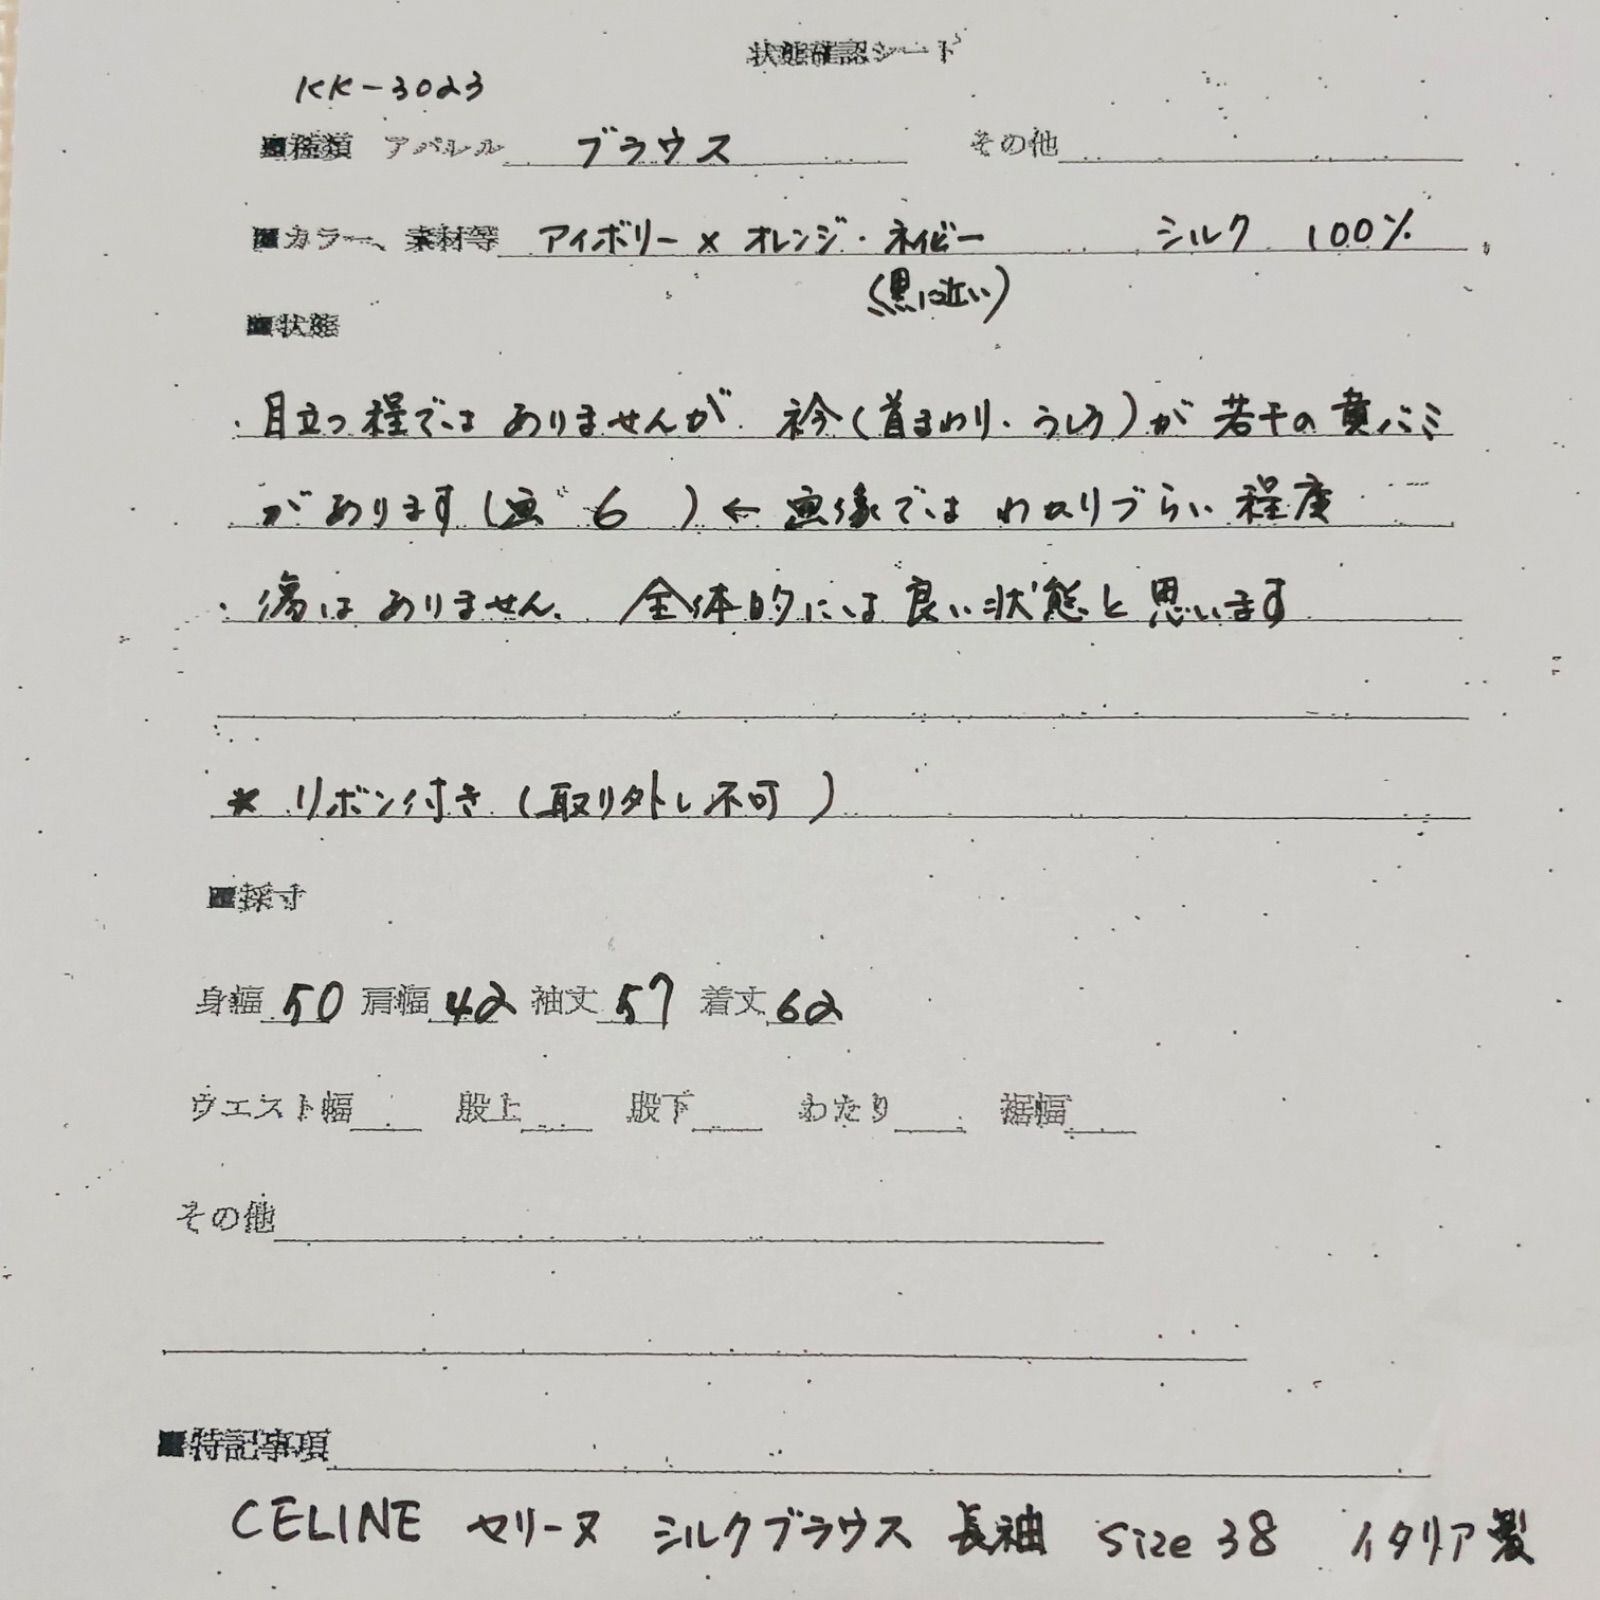 状態確認シート
KK-3023
■種類 アパレル ブラウス その他
■カラー、素材等 アイボリー×オレンジ・ネイビー シルク 100%
(黒に近い)
■状態
・目立つ程ではありませんが 衿(首まわり・うしろ)が若干の黄バミ
があります(画゛6 )←画像ではわかりづらい程度
・傷はありません、全体的には良い状態と思います
* リボン付き(取り外し不可)
■採寸
身幅 50 肩幅 42 袖丈 57 着丈 62
ウエスト幅 股上 股下 わたり 裾幅
その他
■特記事項
CELINE セリーヌ シルクブラウス 長袖 size 38 イタリア製